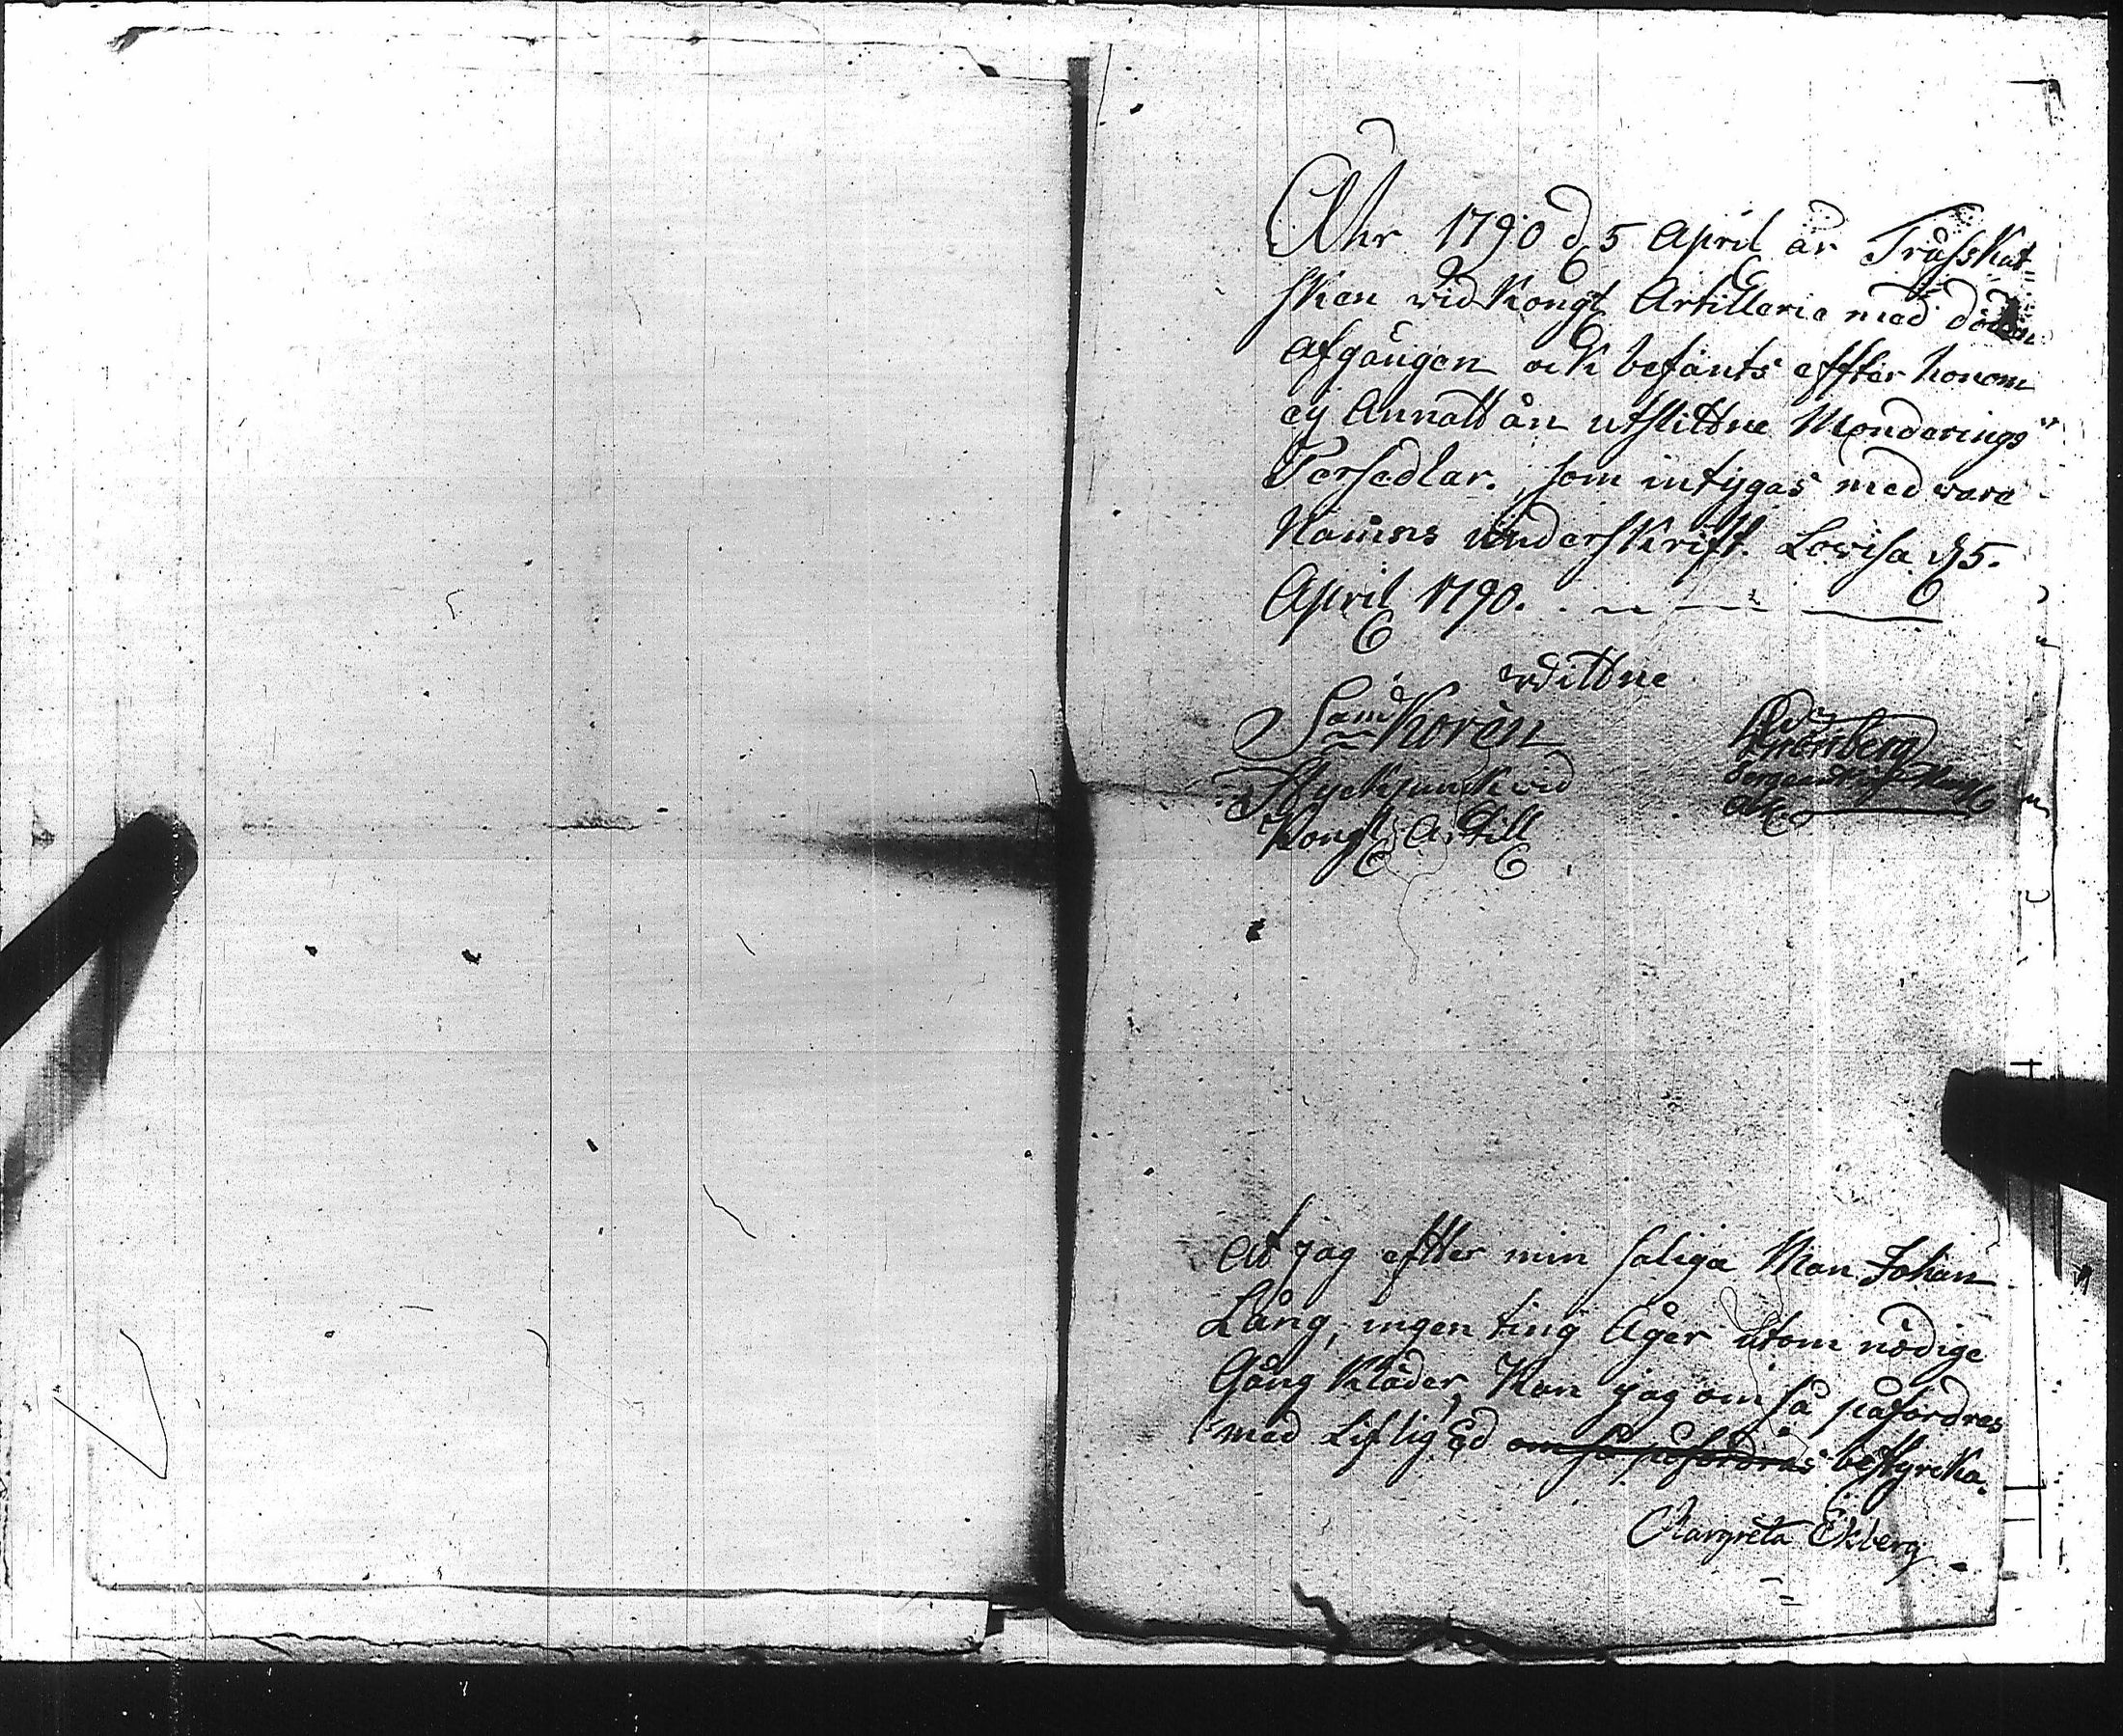 Åhr 1790 d 5 April är Trässkut=
sken wid Kongl Artillerie med döden
afgången ock befants effter honom
ej Annatt än utslittne Monderings"
Persedlar. som intygas med wara
Namns underskrift. Lovisa d 5.
April 1790.
wittne
Saml Korèn
Styckjunck wid
Kongl Artill
Sergeant
At jag efter min saliga Man Johan
Lång, ingen ting Äger utom nödige
Gång Kläder, Kan jag om så påfordras
med Liflig Ed om så påfordras bestyrcka.
Margreta Ekberg